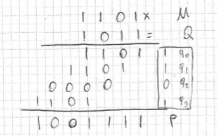 1 1 0 1 × M
1 0 1 1 = Q
1 1 0 1 1 q₀
1 1 0 1 1 q₁
0 0 0 0 0 q₂
1 1 0 1 1 q₃
1 0 0 1 1 1 1 P